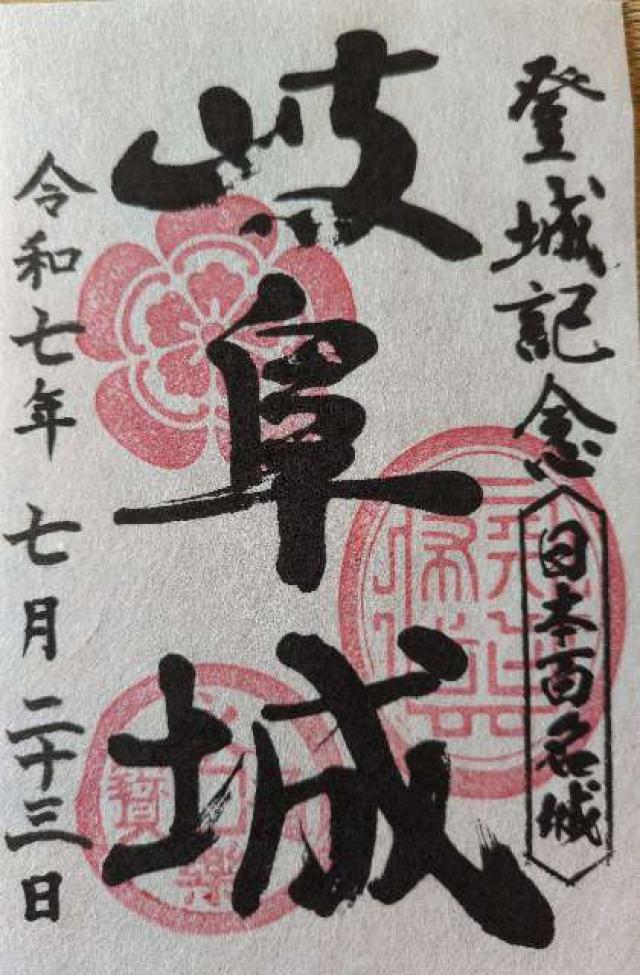 登城記念
日本百名城
岐阜城
令和七年 七月二十三日